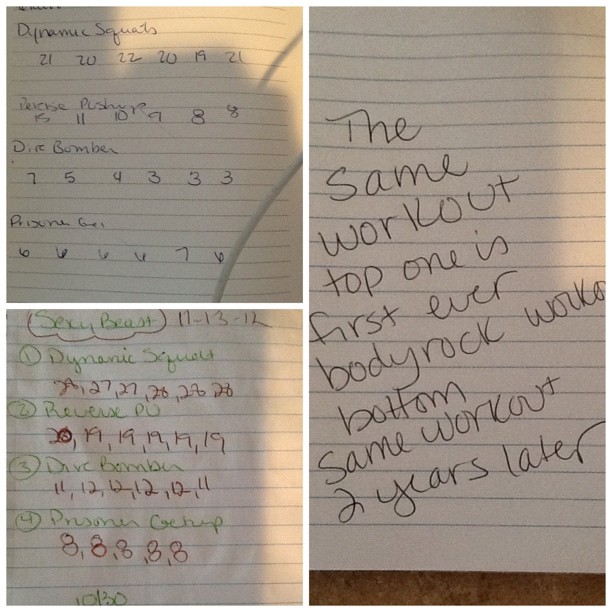 Dynamic Squats
21 20 22 20 19 21
Reverse Pushup
15 11 10 9 8 8
Dive Bomber
7 5 4 3 3 3
Prisoner Get
6 6 6 6 7 6
Sexy Beast 11-13-12
① Dynamic Squat
28, 27, 27, 28, 28, 28
② Reverse PU
20, 19, 19, 19, 19, 19
③ Dive Bomber
11, 12, 12, 12, 12, 11
④ Prisoner Getup
8, 8, 8, 8, 8
10/30
The
same
workout
top one is
first ever
bodyrock worko
bottom
same workout
2 years later